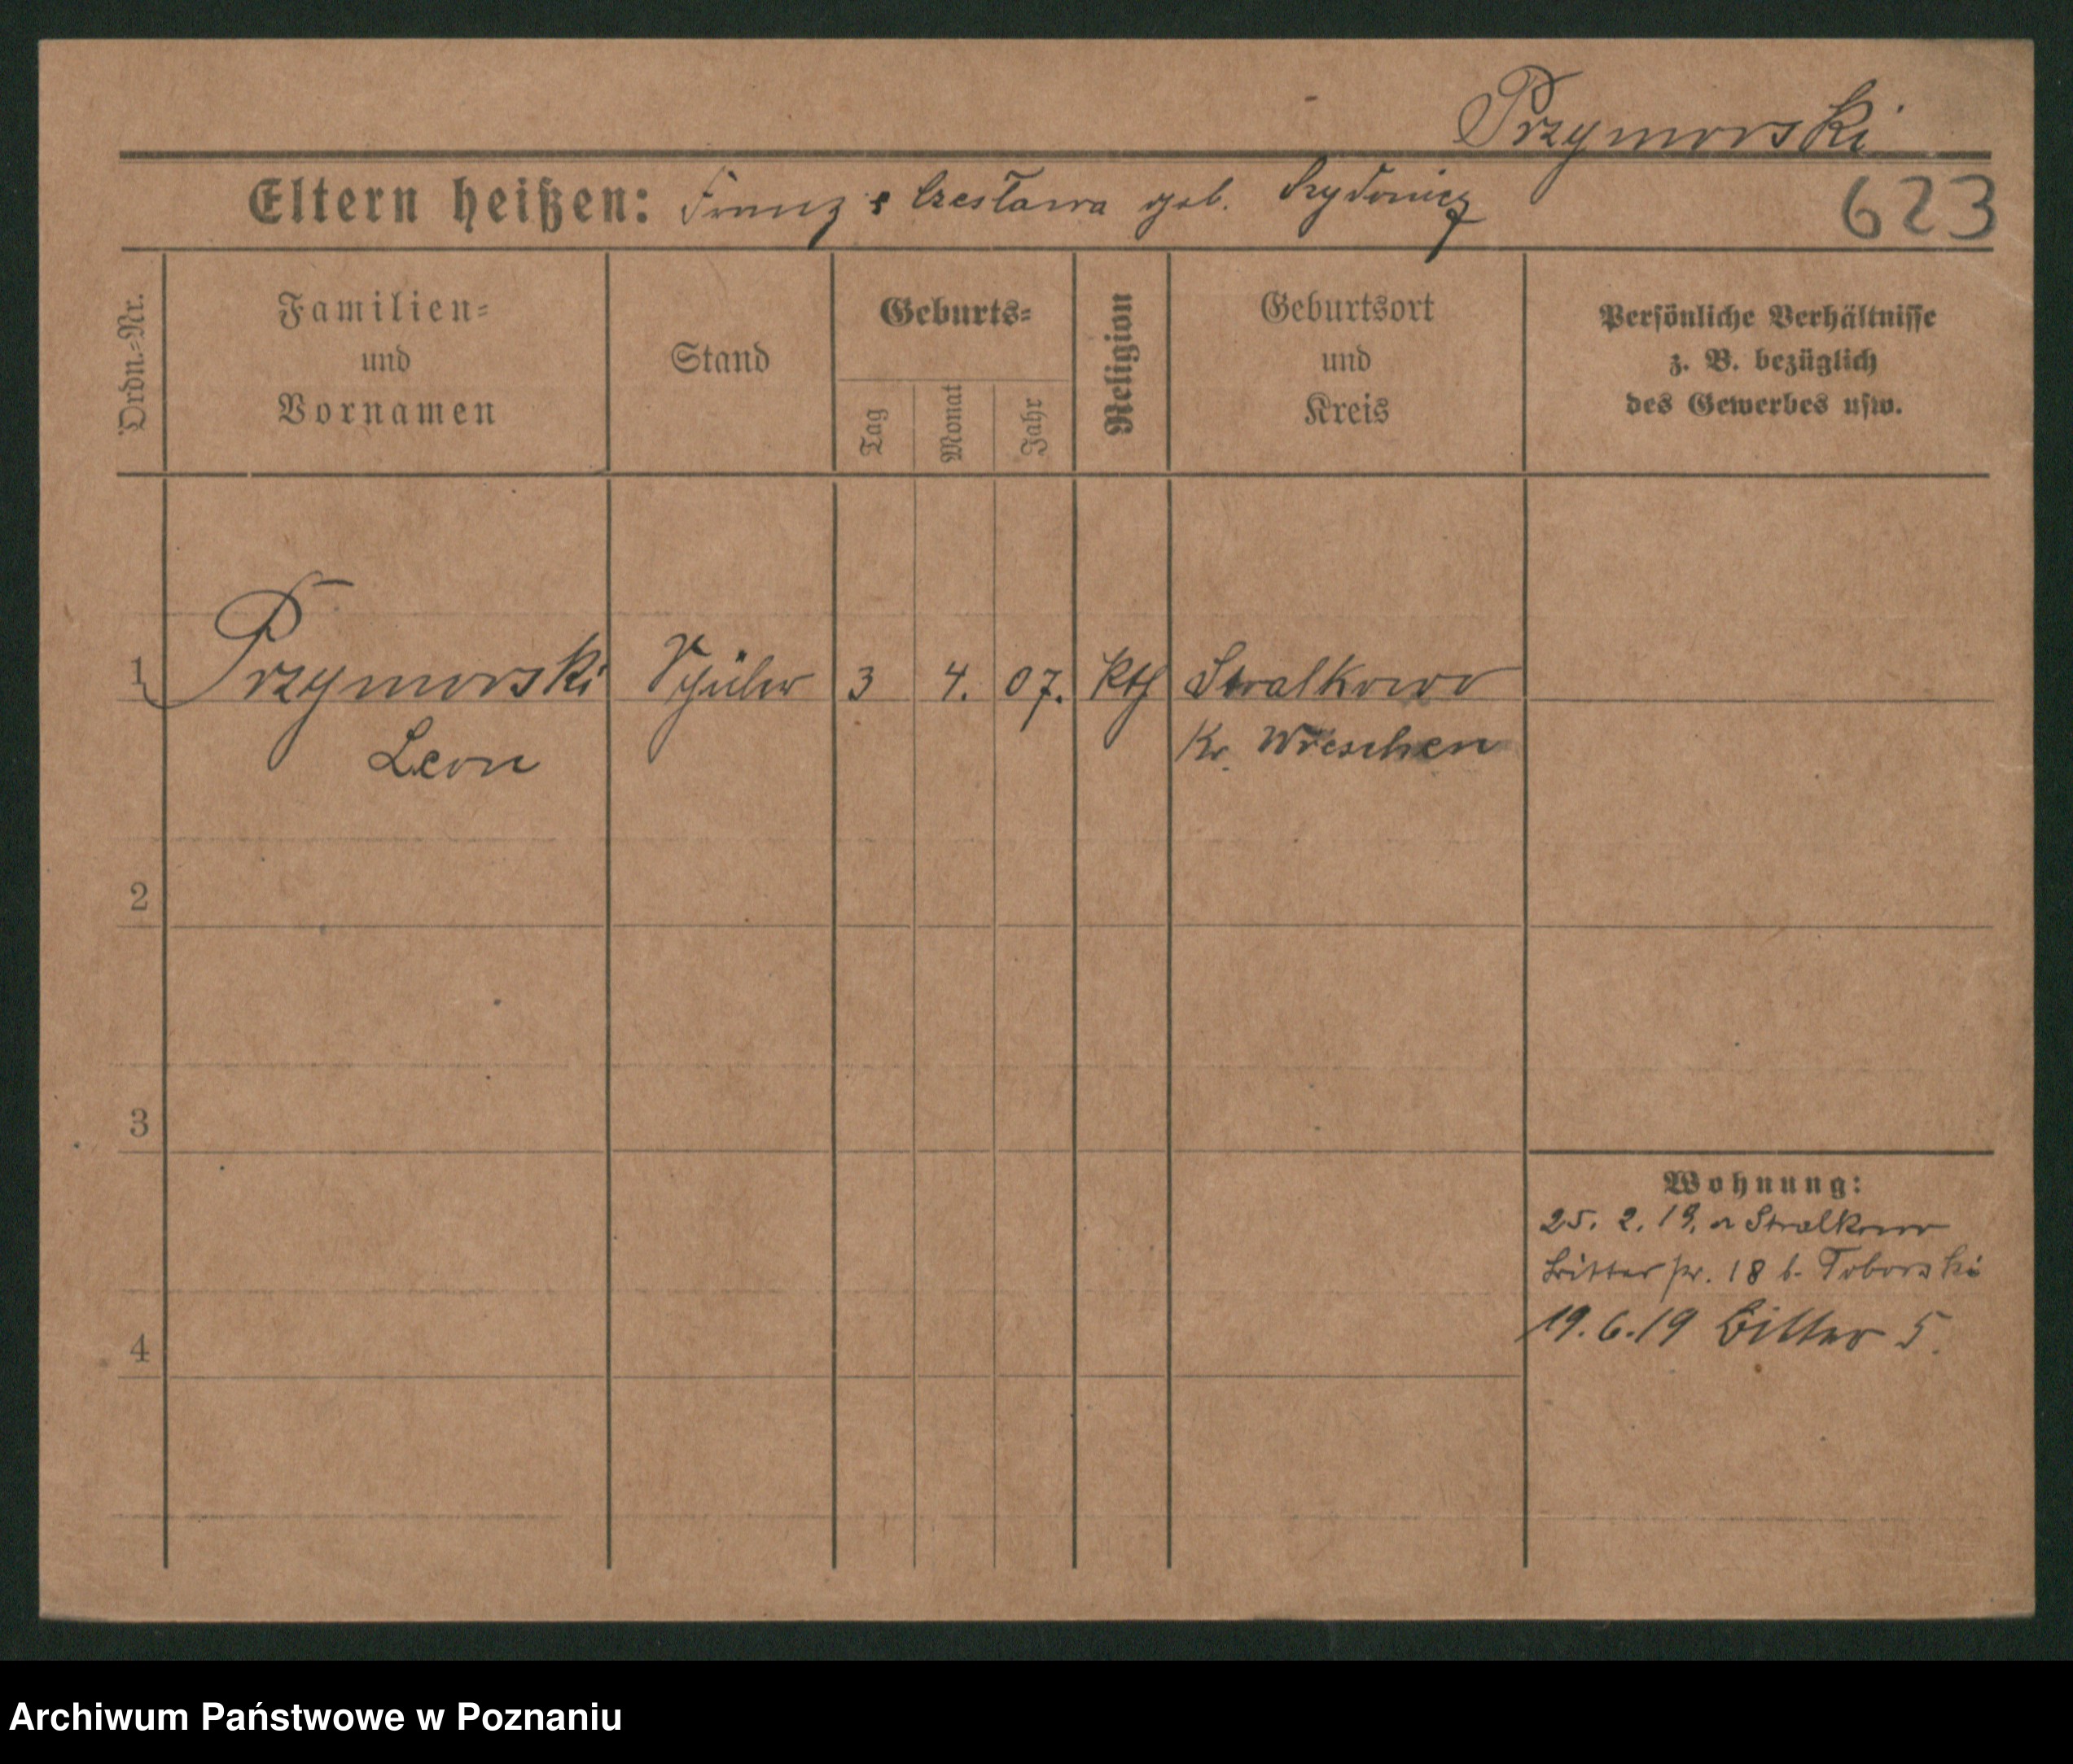 Przymorski
Eltern heißen: Franz & Czesława geb.
623
Ordn.-Nr.
Familien-
und
Vornamen
Stand
Geburts-
Tag
Monat
Jahr
Religion
Geburtsort
und
Kreis
Persönliche Verhältnisse
z. B. bezüglich
des Gewerbes usw.
1 Przymorski Schüler 3 4. 07. kth Stralkowo
Leon Kr. Wreschen
2
3
Wohnung:
25. 2. 19. a Stralkowo
Ritterstr. 18 b. Toborski
19. 6. 19 Ritter 5.
4
Archiwum Państwowe w Poznaniu